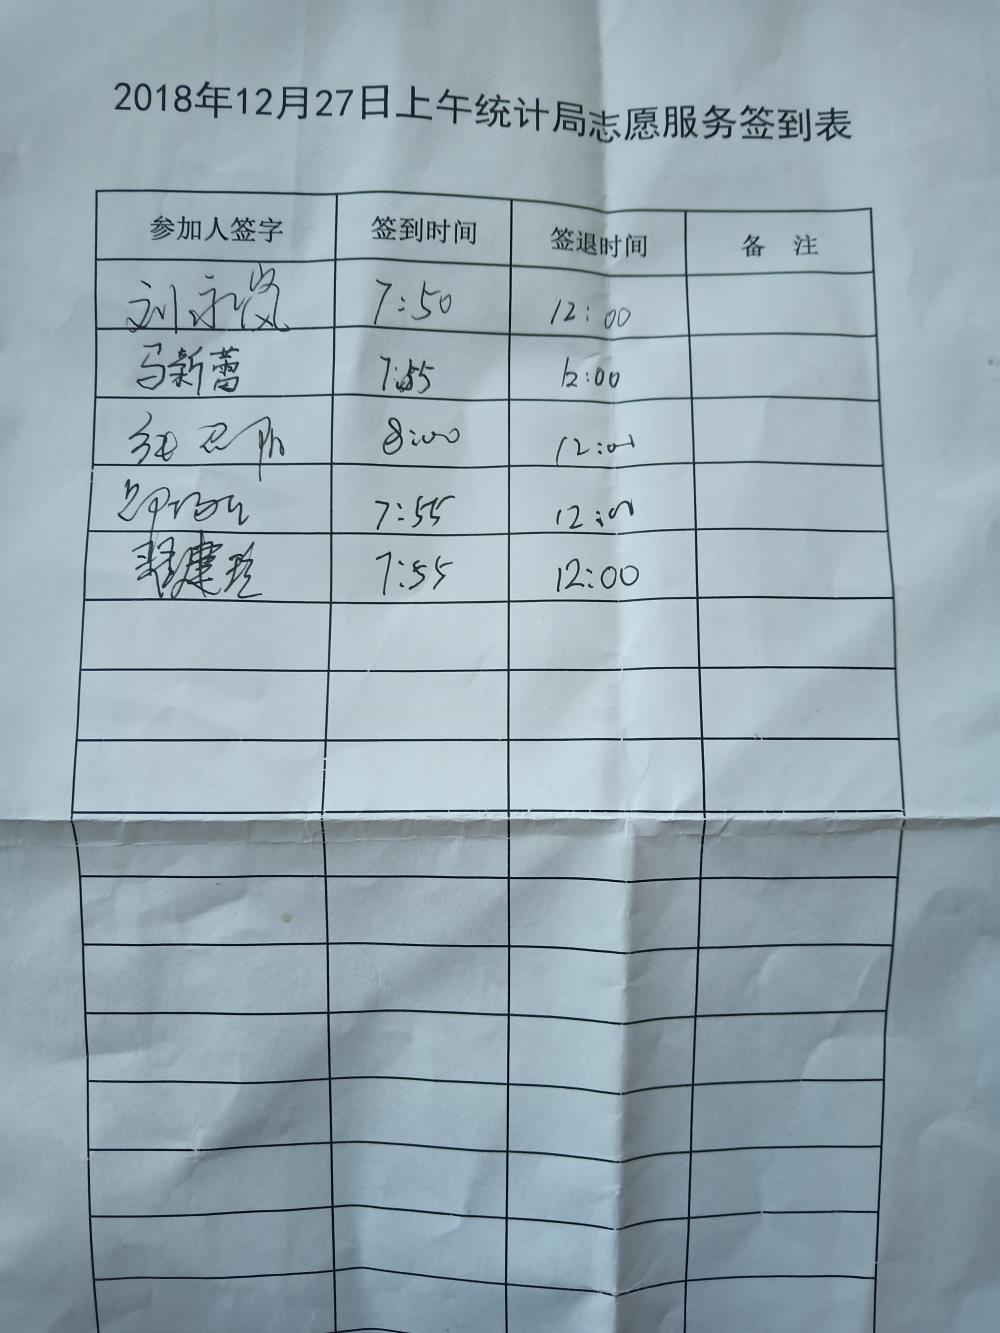 2018年12月27日上午统计局志愿服务签到表
参加人签字 签到时间 签退时间 备 注
刘永岚 7:50 12:00
马新蕾 7:55 12:00
8:00 12:00
7:55 12:00
建玲 7:55 12:00